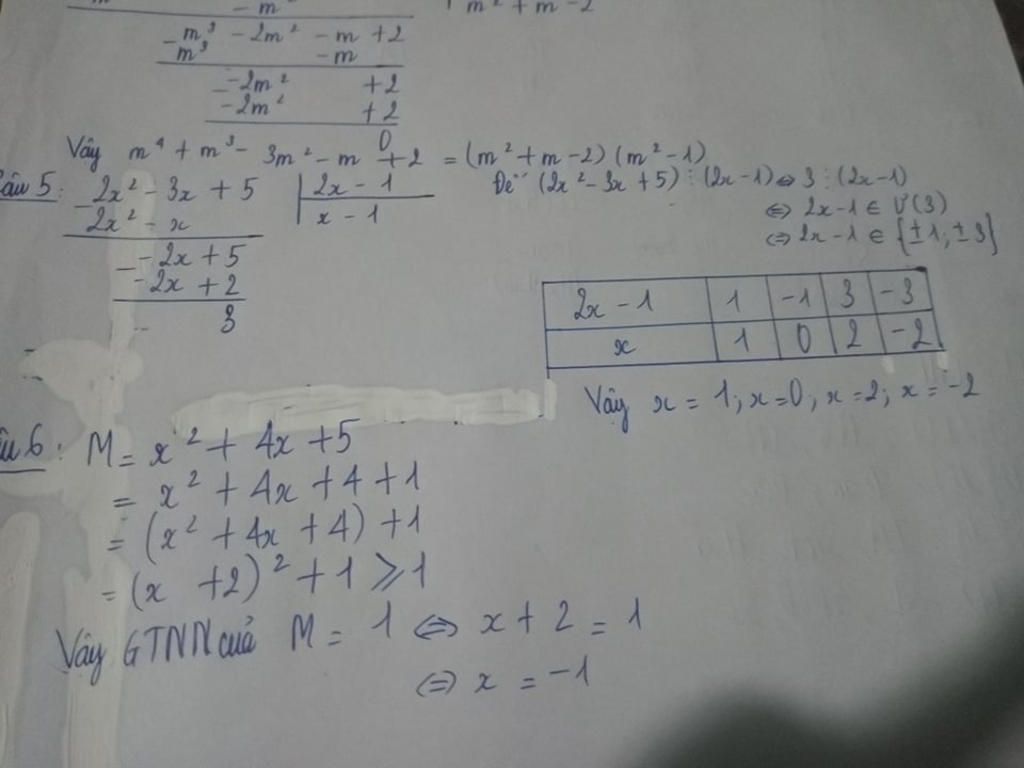 - m² m² + m - 2
m³ - 2m² - m + 2
- m³ - m
- 2m² + 2
- - 2m² + 2
0
Vây m⁴ + m³ - 3m² - m + 2 = (m² + m - 2) (m² - 1)
Câu 5: 2x² - 3x + 5 | 2x - 1
- 2x² - x x - 1
- 2x + 5
- - 2x + 2
3
Để (2x² - 3x + 5) ⋮ (2x - 1) ⇔ 3 ⋮ (2x - 1)
⇔ 2x - 1 ∈ Ư(3)
⇔ 2x - 1 ∈ {±1; ±3}
2x - 1 1 -1 3 -3
x 1 0 2 -2
Vây x = 1; x = 0; x = 2; x = -2
âu 6: M = x² + 4x + 5
= x² + 4x + 4 + 1
= (x² + 4x + 4) + 1
= (x + 2)² + 1 ⩾ 1
Vây GTNN của M = 1 ⇔ x + 2 = 1
⇔ x = -1